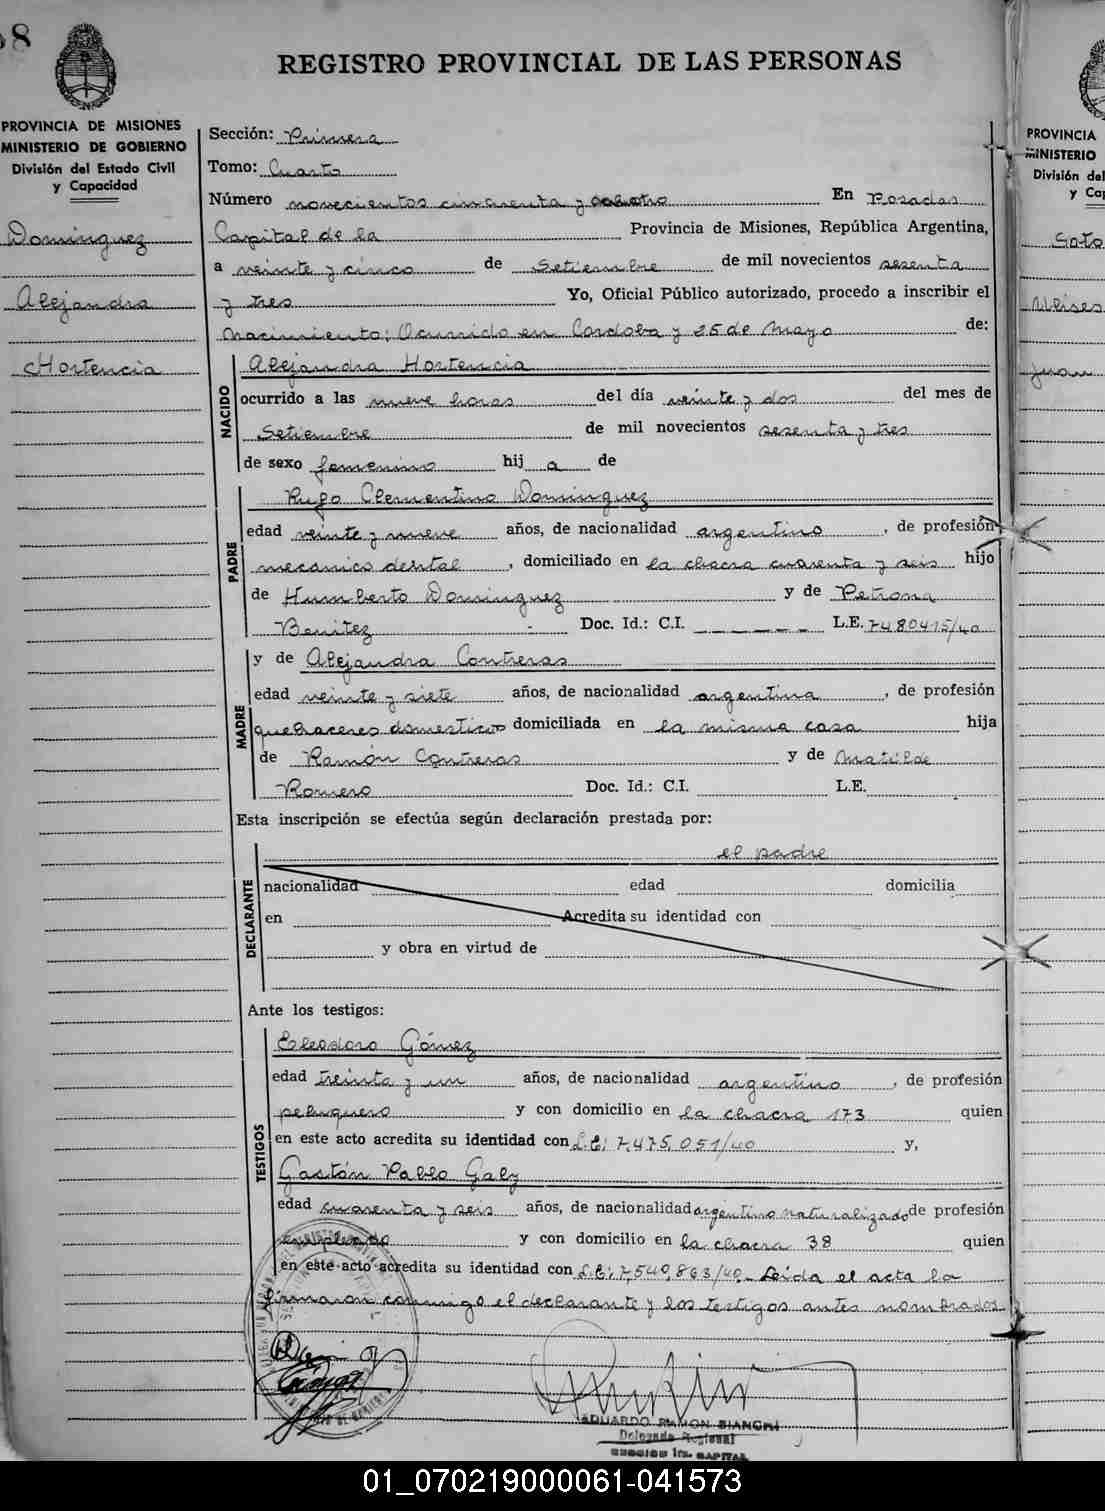 58
REGISTRO PROVINCIAL DE LAS PERSONAS
PROVINCIA DE MISIONES
MINISTERIO DE GOBIERNO
División del Estado Civil
y Capacidad
Dominguez
Alejandra
Hortencia
Sección: Primera
Tomo: Cuarto
Número novecientos cincuenta y cuatro En Posadas
Capital de la Provincia de Misiones, República Argentina,
a veinte y cinco de Setiembre de mil novecientos sesenta
y tres Yo, Oficial Público autorizado, procedo a inscribir el
nacimiento; Ocurrido en Cordoba y 25 de Mayo de:
NACIDO
Alejandra Hortencia
ocurrido a las nueve horas del día veinte y dos del mes de
Setiembre de mil novecientos sesenta y tres
de sexo femenino hij a de
PADRE
Hugo Clementino Dominguez
edad veinte y nueve años, de nacionalidad argentino, de profesión
mecanico dental, domiciliado en la chacra cuarenta y seis hijo
de Humberto Dominguez y de Petrona
Benitez Doc. Id.: C.I. — — — — — L.E. 7480415/40
MADRE
y de Alejandra Contreras
edad veinte y siete años, de nacionalidad argentina, de profesión
quehaceres domesticos domiciliada en la misma casa hija
de Ramón Contreras y de Matilde
Romero Doc. Id.: C.I. L.E.
Esta inscripción se efectúa según declaración prestada por:
DECLARANTE
el padre
nacionalidad edad domicilia
en Acredita su identidad con
y obra en virtud de
Ante los testigos:
TESTIGOS
Eleodoro Gómez
edad treinta y un años, de nacionalidad argentino, de profesión
peluquero y con domicilio en la chacra 173 quien
en este acto acredita su identidad con L.E: 7,475,051/40 y,
Gastón Pablo Galy
edad cuarenta y seis años, de nacionalidad argentino naturalizado de profesión
empleado y con domicilio en la chacra 38 quien
en este acto acredita su identidad con L.E: 7,540,863/40. Leida el acta la
firmaron conmigo el declarante y los testigos antes nombrados.
EDUARDO RAMON BIANCHI
Delegado Regional
SECCION 1ra. CAPITAL
PROVINCIA
MINISTERIO
División del
y Cap
Soto
Ulises
Juan
01_070219000061-041573